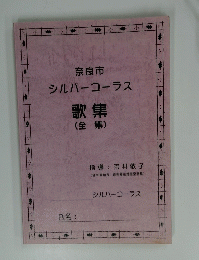 奈良市
シルバーコーラス
歌集
(全編)
シルバーコーラス
氏名: